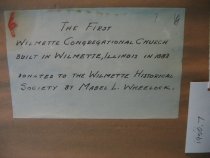 The First
Wilmette Congregational Church
built in Wilmette, Illinois in
Donated to the Wilmette Historical
Society by Mabel L. Wheelock.